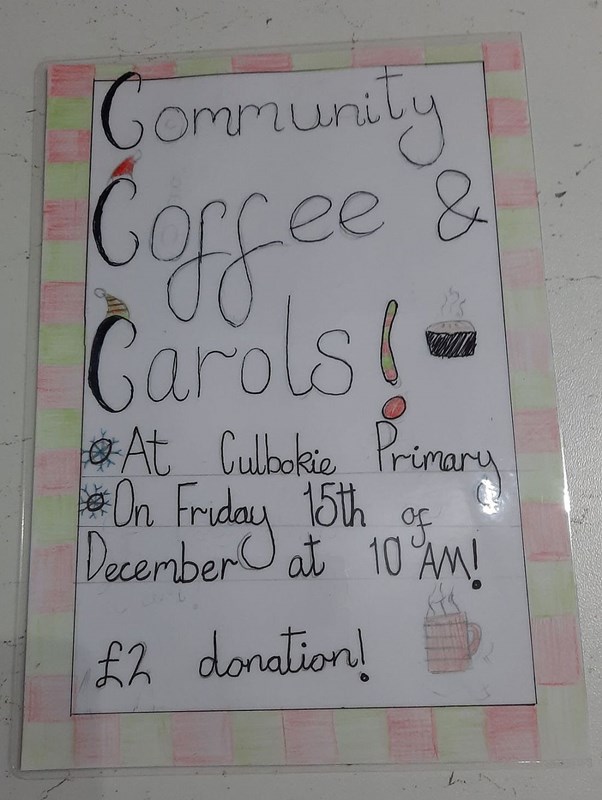 Community
Coffee &
Carols!
At Culbokie Primary
On Friday 15th of
December at 10 AM!
£2 donation!